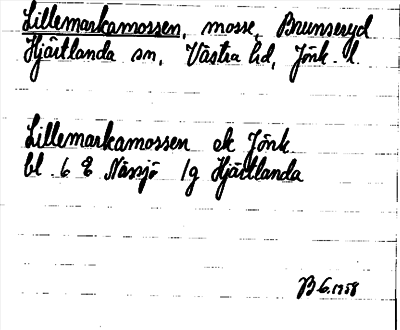 Lillemarkamossen, mosse, Brunseryd
Hjärtlanda sn, Västra hd, Jönk. l.
Lillemarkamossen ek Jönk
bl. 6 E Nässjö 1g Hjärtlanda
B G. 1958